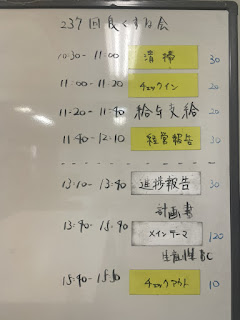 237回良くする会
10:30-11:00 清掃 30
11:00-11:20 チェックイン 20
11:20-11:40 給与支給 20
11:40-12:10 経営報告 30
13:10-13:40 進捗報告 30
計画書
13:40-15:40 メインテーマ 120
生産性
15:40-15:50 チェックアウト 10